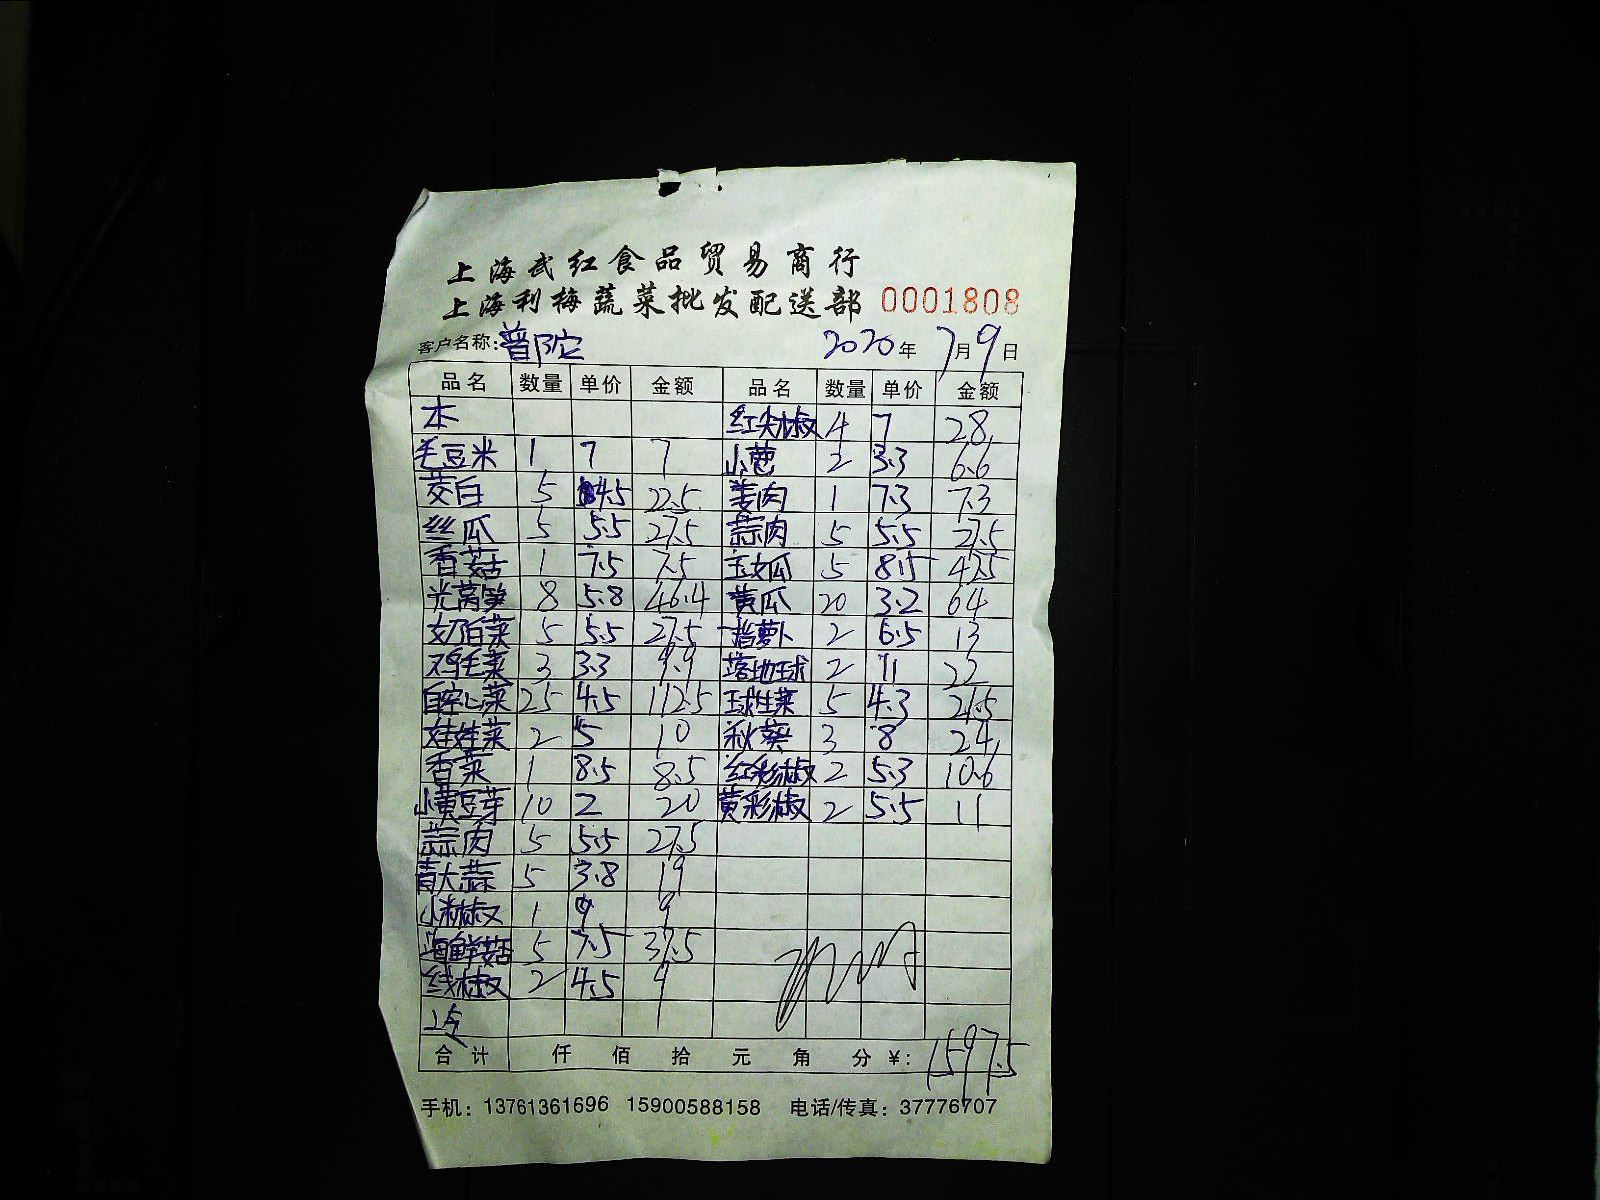 上海武红食品贸易商行
上海利梅蔬菜批发配送部 0001808
客户名称: 普陀 2020年 7月9日
品名 数量 单价 金额 品名 数量 单价 金额
本 红尖椒 4 7 28
毛豆米 1 7 7 小葱 2 3.3 6.6
茭白 5 4.5 22.5 姜肉 1 7.3 7.3
丝瓜 5 5.5 27.5 蒜肉 5 5.5 27.5
香菇 1 7.5 7.5 玉女瓜 5 8.5 42.5
光莴笋 8 5.8 46.4 黄瓜 20 3.2 64
奶白菜 5 5.5 27.5 指萝卜 2 6.5 13
鸡毛菜 3 3.3 9.9 落地球 2 11 22
白空心菜 25 4.5 112.5 球生菜 5 4.3 21.5
娃娃菜 2 5 10 秋葵 3 8 24
香菜 1 8.5 8.5 红彩椒 2 5.3 10.6
小黄豆芽 10 2 20 黄彩椒 2 5.5 11
蒜肉 5 5.5 27.5
青大蒜 5 3.8 19
小米椒 1 9 9
海鲜菇 5 7.5 37.5
线椒 2 4.5 9
合计 仟 佰 拾 元 角 分 ¥: 1597.5
手机: 13761361696 15900588158 电话/传真: 37776707